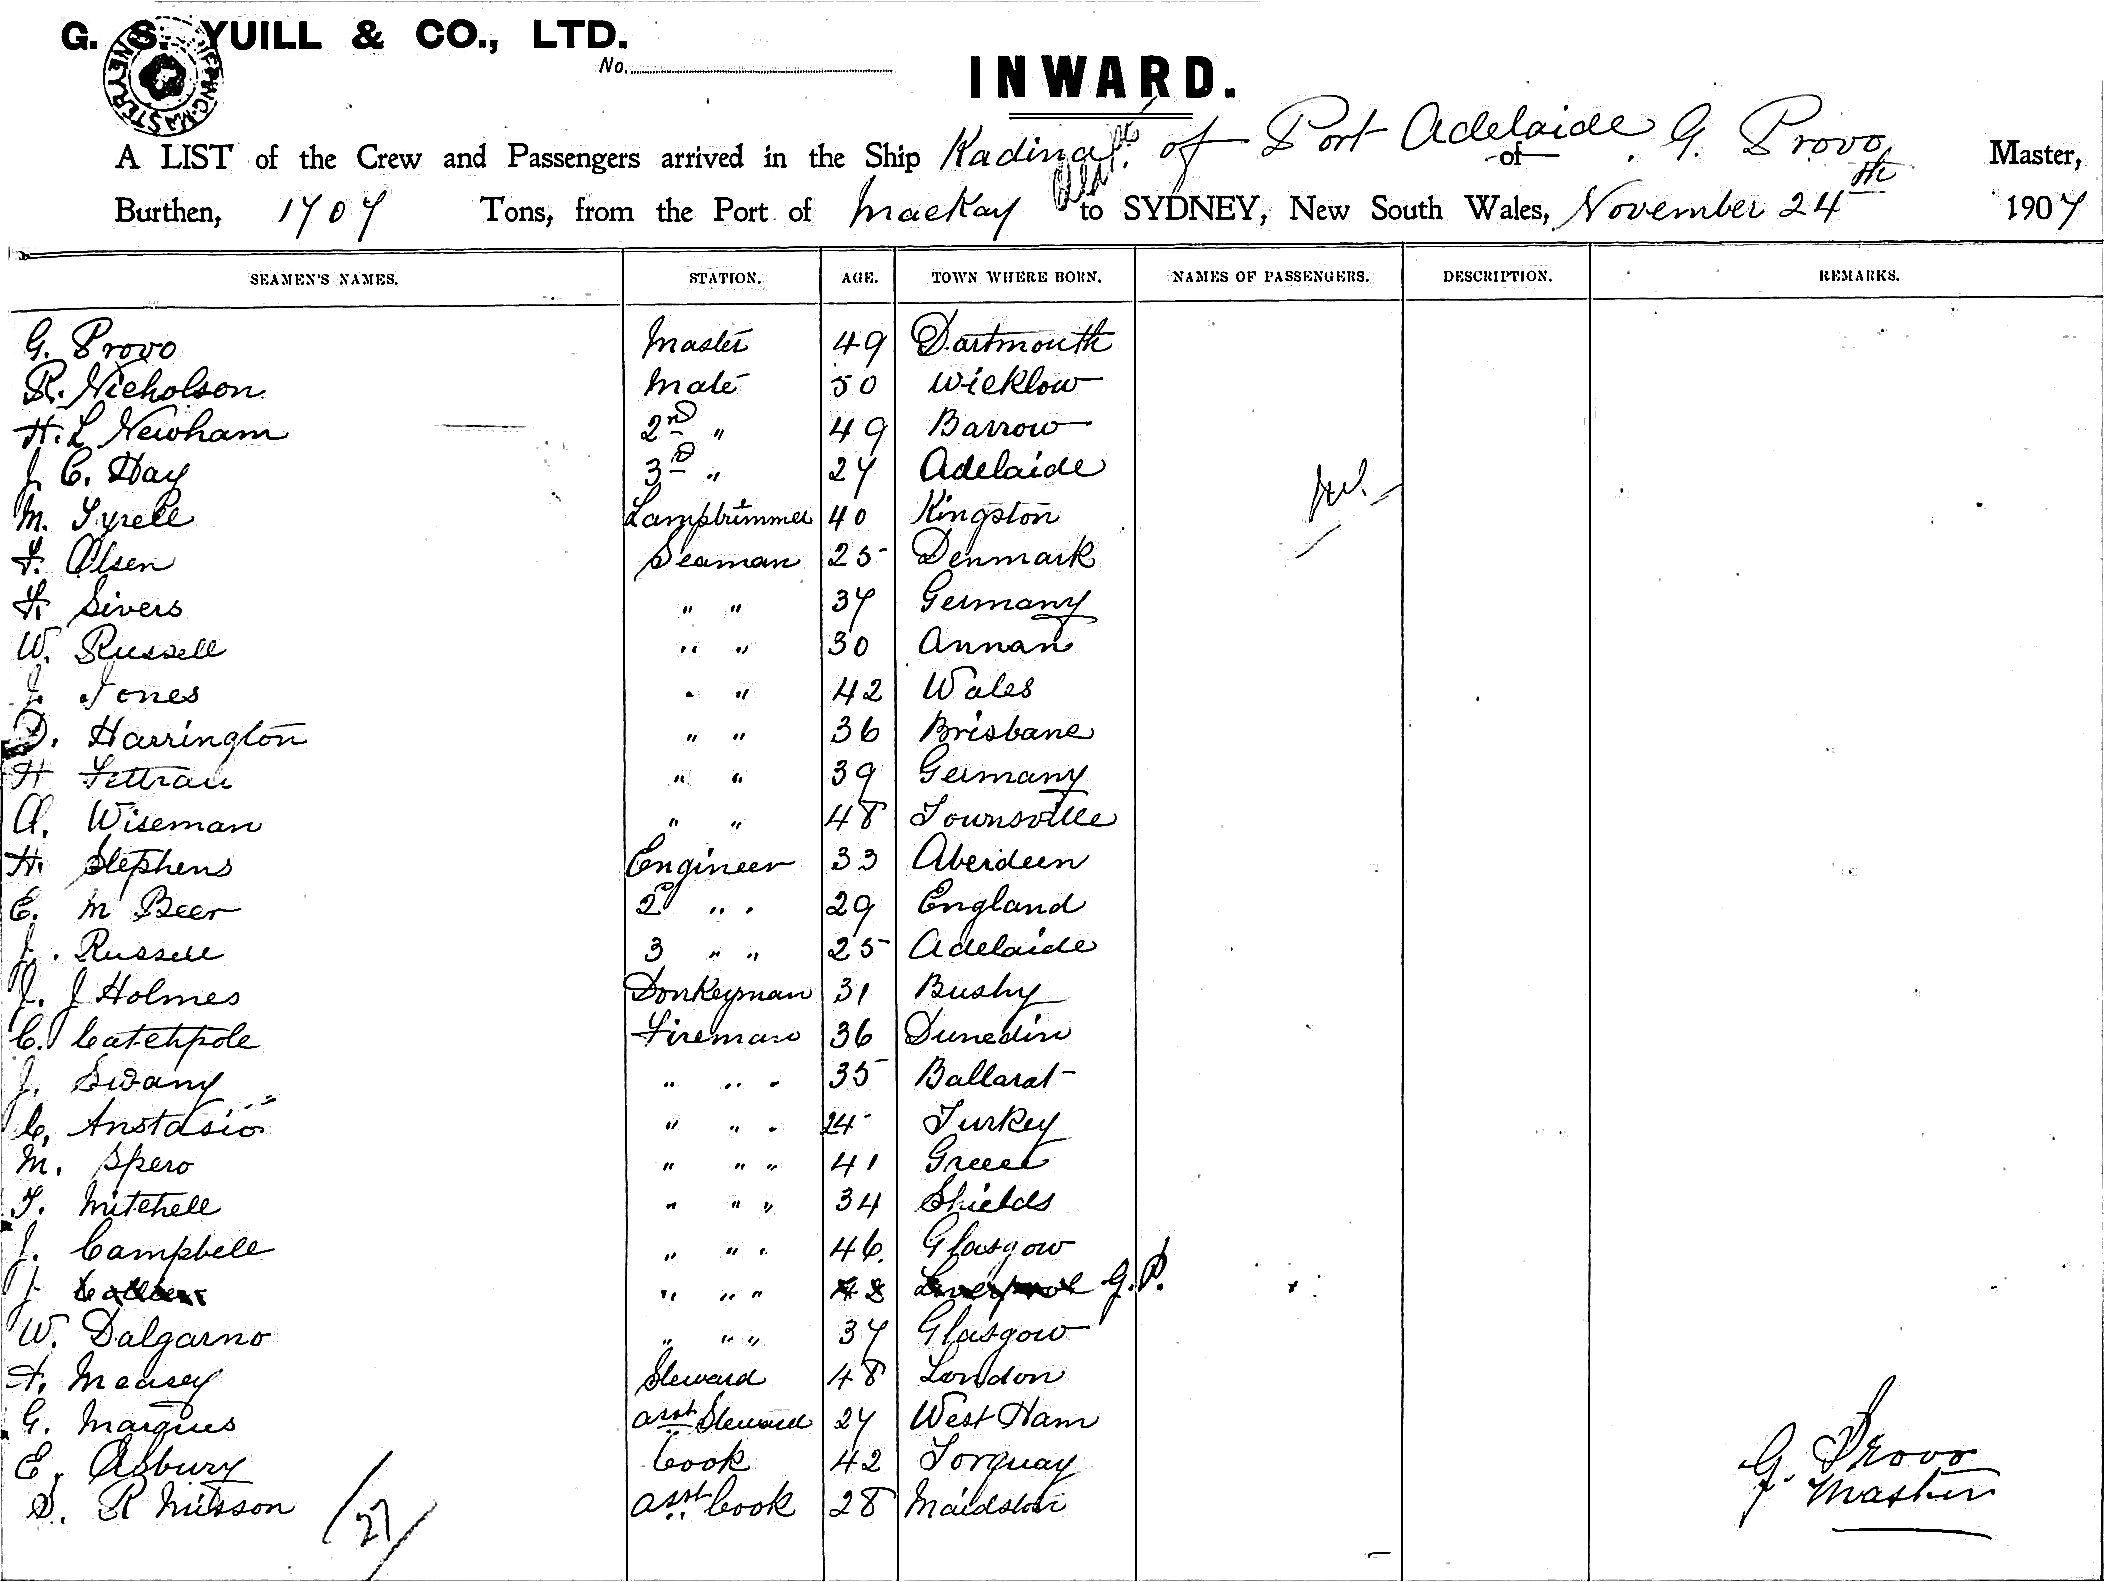 G. S. YUILL & CO., LTD.
No.
INWARD.
A LIST of the Crew and Passengers arrived in the Ship Kadina of Port Adelaide of G. Provo Master,
Burthen, 1707 Tons, from the Port of Mackay to SYDNEY, New South Wales, November 24th 1907
SEAMEN'S NAMES. STATION. AGE. TOWN WHERE BORN. NAMES OF PASSENGERS. DESCRIPTION. REMARKS.
G. Provo Master 49 Dartmouth
R. Nicholson Mate 50 Wicklow
H. L Newham 2nd " 49 Barrow
J. C. Day 3D " 27 Adelaide
M. Tyrell Lamptrimmer 40 Kingston
F. Olsen Seaman 25 Denmark
F. Sivers " " 37 Germany
W. Russell " " 30 Annan
J. Jones " " 42 Wales
D. Harrington " " 36 Brisbane
H " " 39 Germany
A. Wiseman " " 48 Townsville
H. Stephens Engineer 33 Aberdeen
E. M Beer 2 " " 29 England
J. Russell 3 " " 25 Adelaide
J. J Holmes Donkeyman 31 Bushy
C. Catchpole Fireman 36 Dunedin
J. Swany " " " 35 Ballarat
C. Anstasio " " " 24 Turkey
M. Spero " " " 41 Greece
T. Mitchell " " " 34 Shields
J. Campbell " " " 46. Glasgow
J " " " 48 Liverpool G.P.
W. Dalgarno " " " 37 Glasgow
F. Measey Steward 48 London
G. Marques asst Steward 27 West Ham
E. Asbury Cook 42 Torquay
S. R asst Cook 28 Maidston
27
G. Provo
Master